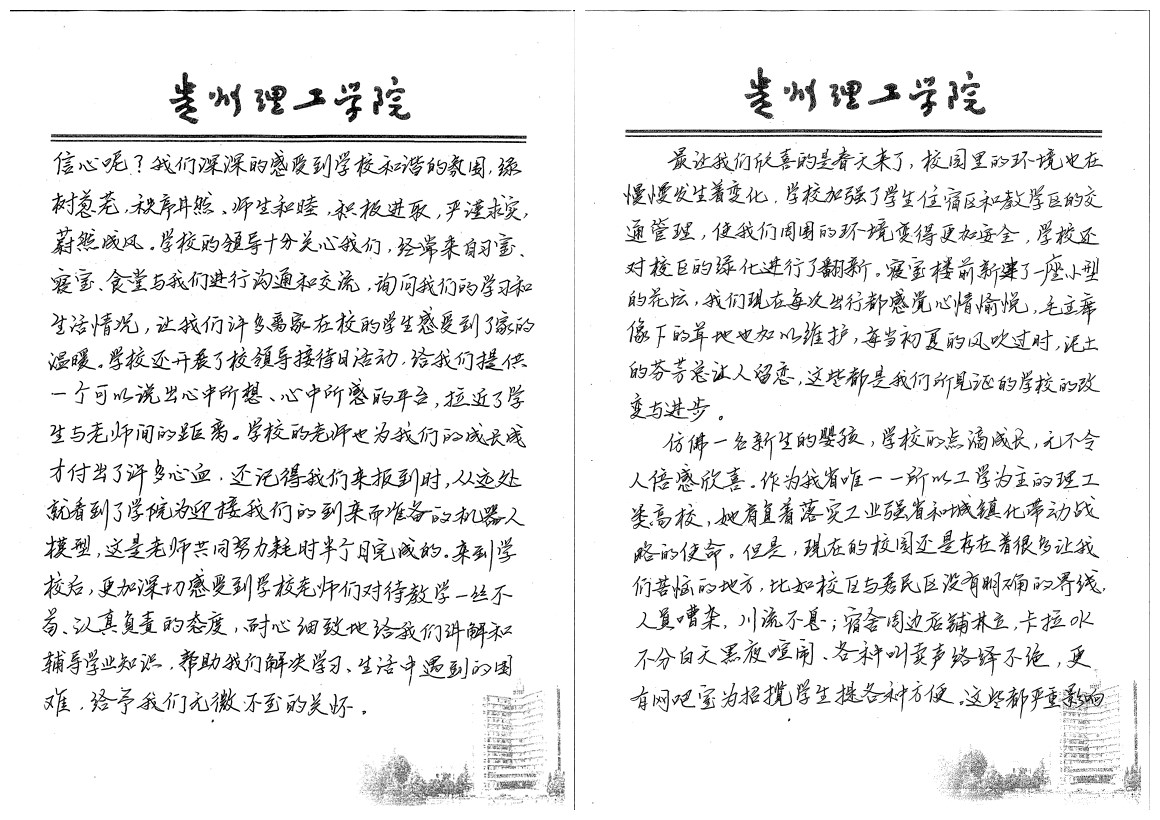 贵州理工学院
信心呢？我们深深的感受到学校和谐的氛围，绿
树葱茏，秩序井然、师生和睦，积极进取，严谨求实，
蔚然成风。学校的领导十分关心我们，经常来自习室、
寝室、食堂与我们进行沟通和交流，询问我们的学习和
生活情况，让我们许多离家在校的学生感受到了家的
温暖。学校还开展了校领导接待日活动，给我们提供
一个可以说出心中所想、心中所感的平台，拉近了学
生与老师间的距离。学校的老师也为我们的成长成
才付出了许多心血，还记得我们来报到时，从远处
就看到了学院为迎接我们的到来而准备的机器人
模型，这是老师共同努力耗时半个月完成的。来到学
校后，更加深切感受到学校老师们对待教学一丝不
苟、认真负责的态度，耐心细致地给我们讲解和
辅导学业知识，帮助我们解决学习、生活中遇到的困
难，给予我们无微不至的关怀。
贵州理工学院
最让我们欣喜的是春天来了，校园里的环境也在
慢慢发生着变化，学校加强了学生住宿区和教学区的交
通管理，使我们周围的环境变得更加安全，学校还
对校区的绿化进行了翻新。寝室楼前新建了一座小型
的花坛，我们现在每次出行都感觉心情愉悦，毛主席
像下的草地也加以维护，每当初夏的风吹过时，泥土
的芬芳总让人留恋，这些都是我们所见证的学校的改
变与进步。
仿佛一名新生的婴孩，学校的点滴成长，无不令
人倍感欣喜。作为我省唯一一所以工学为主的理工
类高校，她肩负着落实工业强省和城镇化带动战
略的使命。但是，现在的校园还是存在着很多让我
们苦恼的地方，比如校区与居民区没有明确的界线，
人员嘈杂，川流不息；宿舍周边店铺林立，卡拉OK
不分白天黑夜喧闹、各种叫卖声络绎不绝，更
有网吧室为招揽学生提各种方便。这些都严重影响